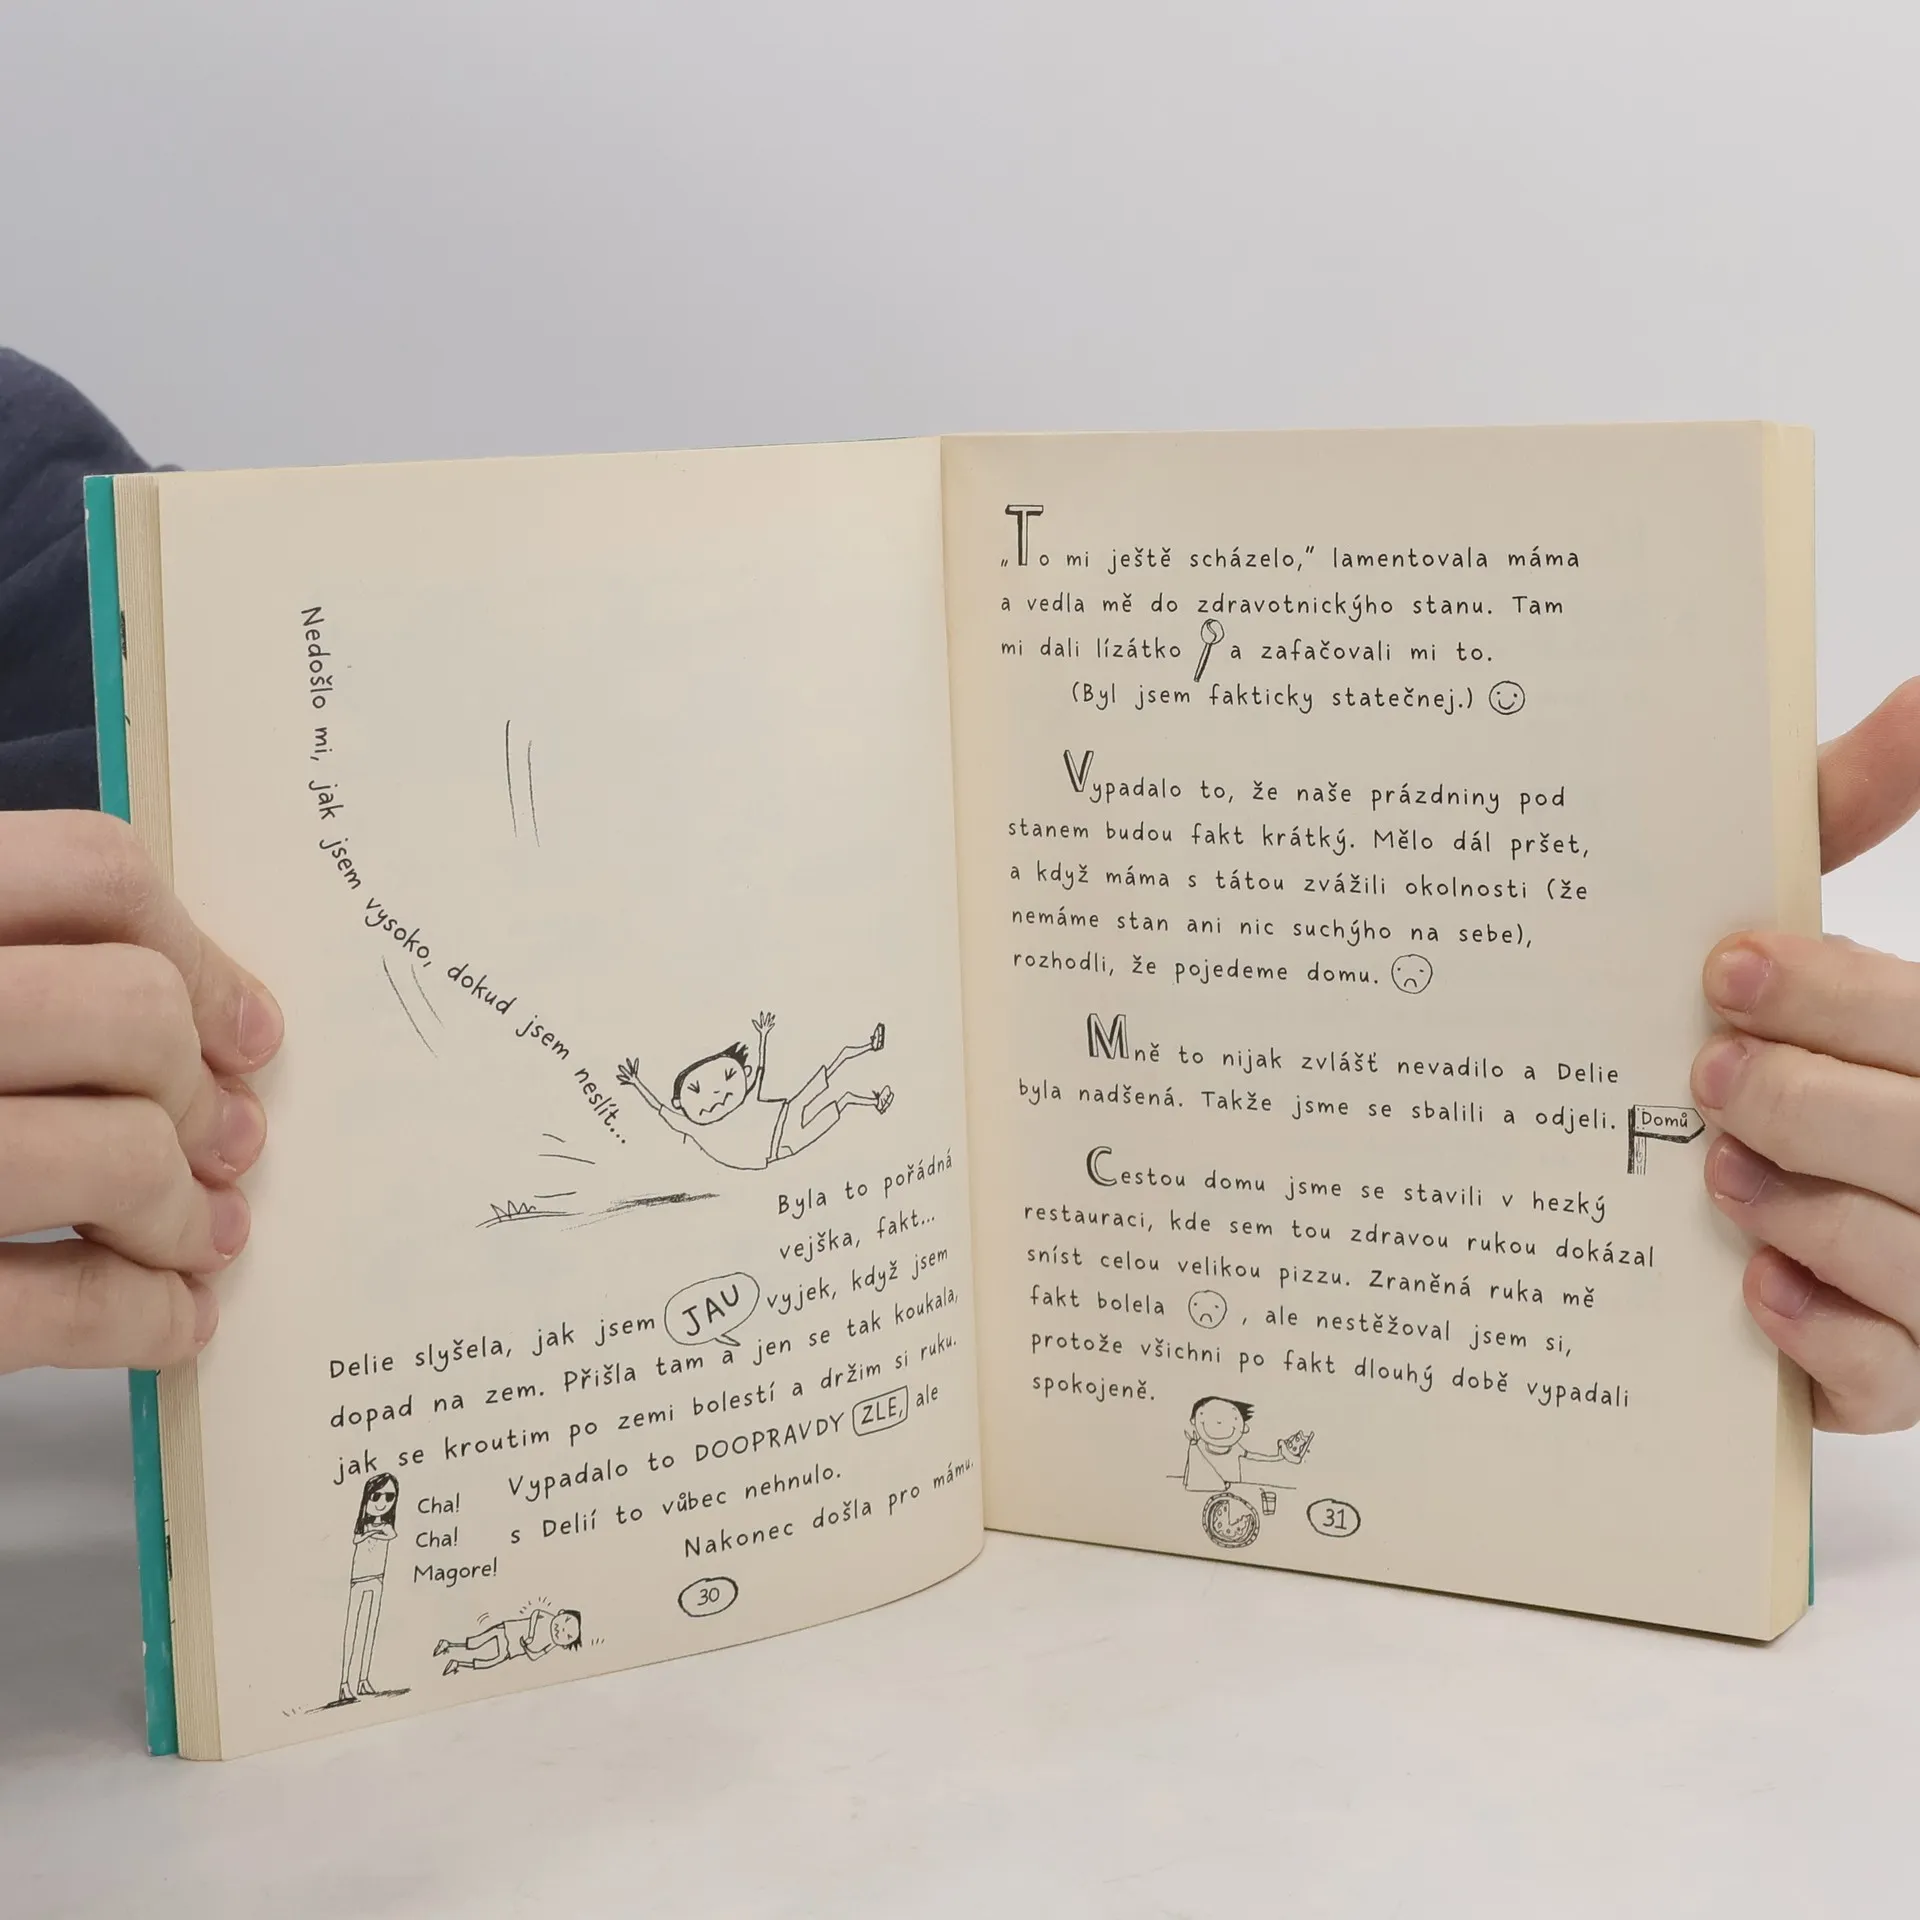 Nedošlo mi, jak jsem vysoko, dokud jsem neslít...
Byla to pořádná
vejška, fakt...
Delie slyšela, jak jsem JAU vyjek, když jsem
dopad na zem. Přišla tam a jen se tak koukala,
jak se kroutim po zemi bolestí a držim si ruku.
Vypadalo to DOOPRAVDY ZLE, ale
s Delií to vůbec nehnulo.
Nakonec došla pro mámu.
Cha!
Cha!
Magore!
30
„To mi ještě scházelo,“ lamentovala máma
a vedla mě do zdravotnickýho stanu. Tam
mi dali lízátko a zafačovali mi to.
(Byl jsem fakticky statečnej.)
Vypadalo to, že naše prázdniny pod
stanem budou fakt krátký. Mělo dál pršet,
a když máma s tátou zvážili okolnosti (že
nemáme stan ani nic suchýho na sebe),
rozhodli, že pojedeme domu.
Mně to nijak zvlášť nevadilo a Delie
byla nadšená. Takže jsme se sbalili a odjeli.
Domů
Cestou domu jsme se stavili v hezký
restauraci, kde sem tou zdravou rukou dokázal
sníst celou velikou pizzu. Zraněná ruka mě
fakt bolela , ale nestěžoval jsem si,
protože všichni po fakt dlouhý době vypadali
spokojeně.
31